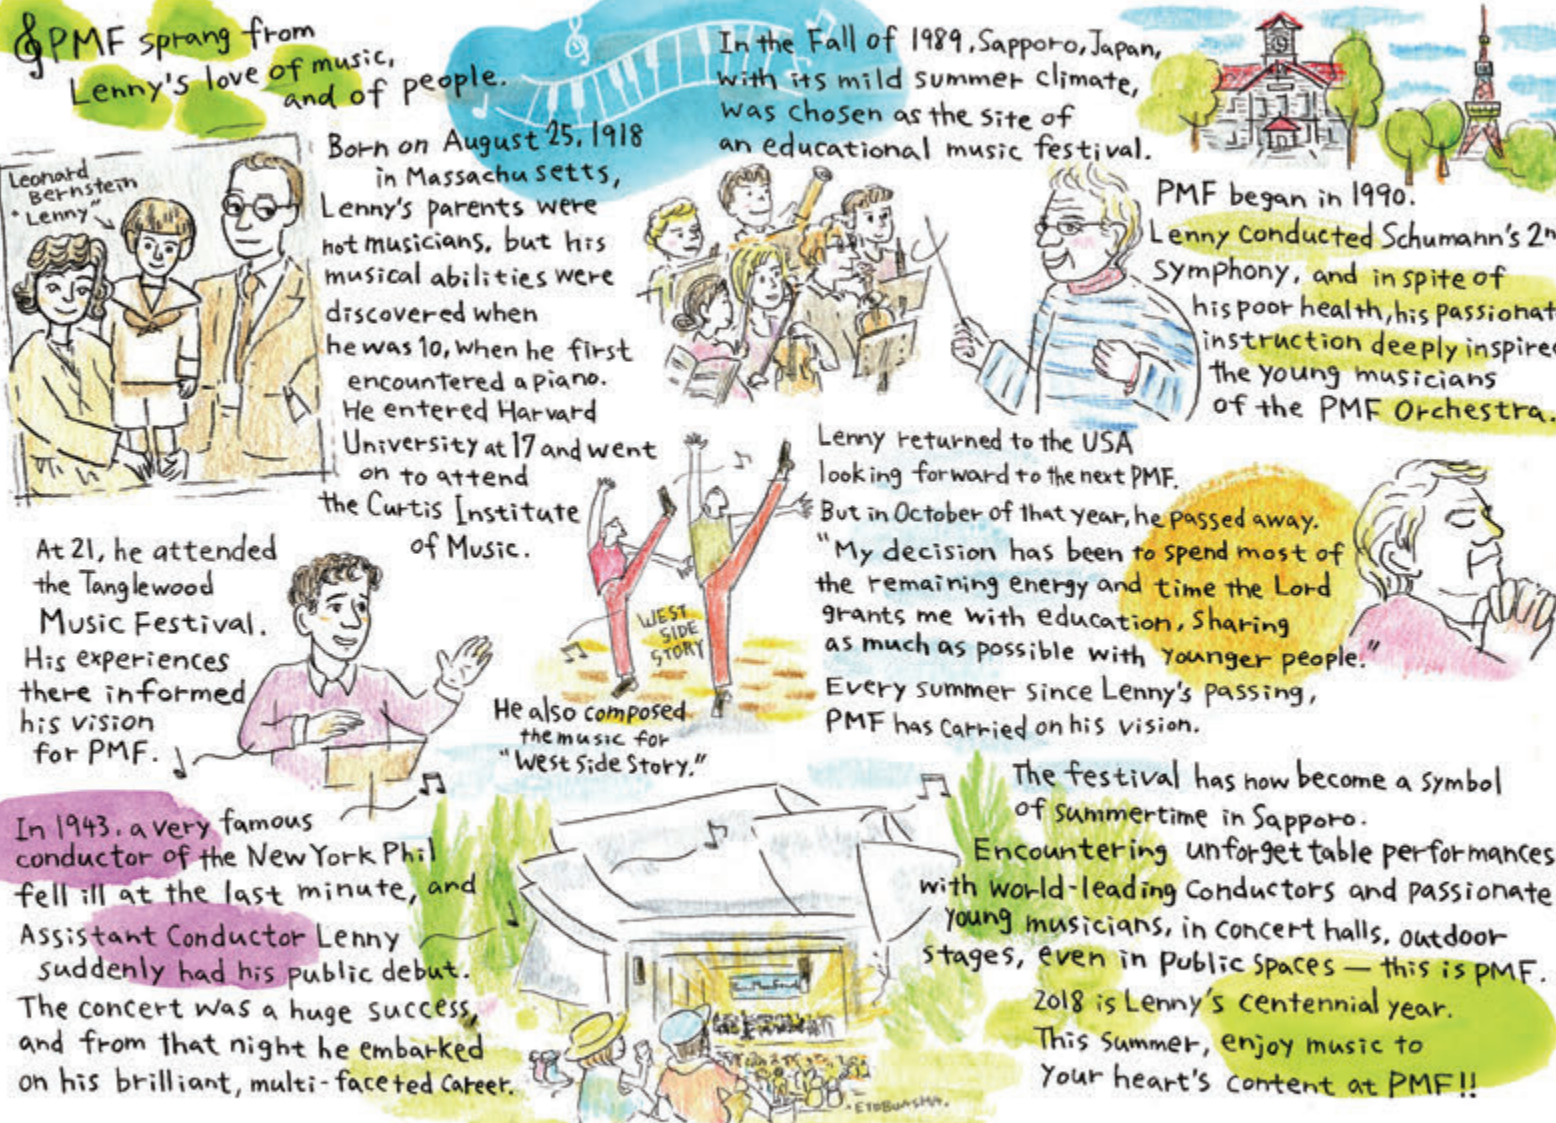 PMF sprang from
Lenny's love of music,
and of people.
Leonard
Bernstein
"Lenny"
Born on August 25, 1918
in Massachusetts,
Lenny's parents were
not musicians, but his
musical abilities were
discovered when
he was 10, when he first
encountered a piano.
He entered Harvard
University at 17 and went
on to attend
the Curtis Institute
of Music.
At 21, he attended
the Tanglewood
Music Festival.
His experiences
there informed
his vision
for PMF.
WEST
SIDE
STORY
He also composed
the music for
"West Side Story."
In 1943, a very famous
conductor of the New York Phil
fell ill at the last minute, and
Assistant Conductor Lenny
suddenly had his public debut.
The concert was a huge success,
and from that night he embarked
on his brilliant, multi-faceted career.
In the Fall of 1989, Sapporo, Japan,
with its mild summer climate,
was chosen as the site of
an educational music festival.
PMF began in 1990.
Lenny conducted Schumann's 2n
Symphony, and in spite of
his poor health, his passionat
instruction deeply inspire
the young musicians
of the PMF Orchestra.
Lenny returned to the USA
looking forward to the next PMF.
But in October of that year, he passed away.
"My decision has been to spend most of
the remaining energy and time the Lord
grants me with education, sharing
as much as possible with younger people."
Every summer since Lenny's passing,
PMF has carried on his vision.
The festival has now become a symbol
of summertime in Sapporo.
Encountering unforgettable performances
with world-leading conductors and passionate
young musicians, in concert halls, outdoor
stages, even in public spaces — this is PMF.
2018 is Lenny's centennial year.
This summer, enjoy music to
your heart's content at PMF!!